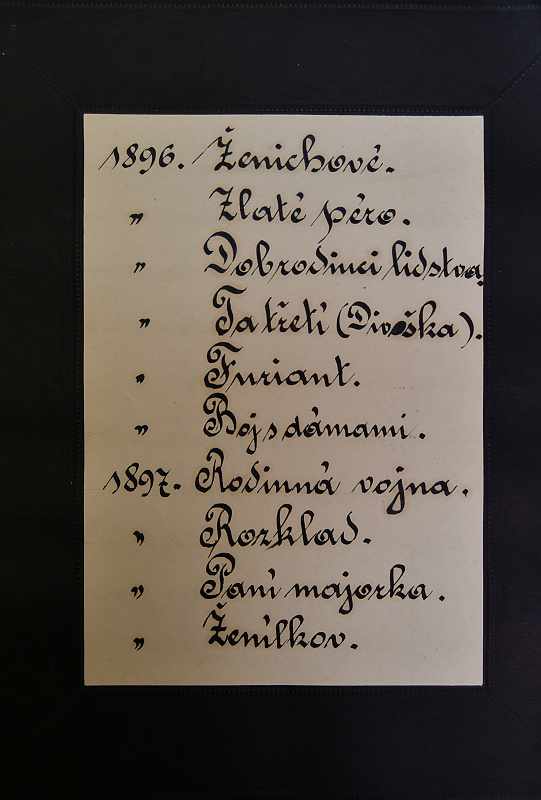 1896. Ženichové.
„ Zlaté péro.
„ Dobrodinci lidstva.
„ Ta třetí (Divoška).
„ Furiant.
„ Boj s dámami.
1897. Rodinná vojna.
„ Rozklad.
„ Paní majorka.
„ Ženílkov.